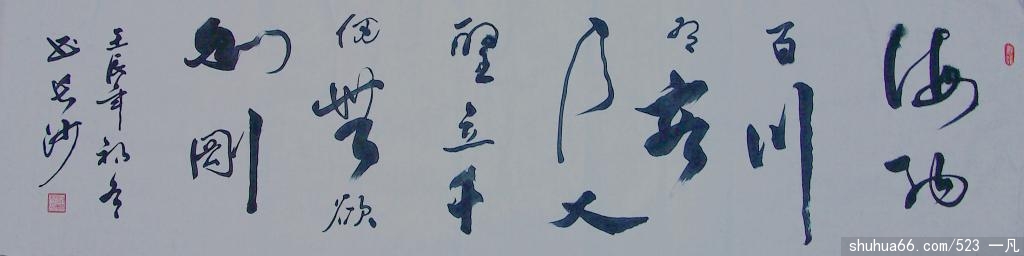 海納
百川
有容
乃大
壁立千
仞無欲
則剛
壬辰年初冬
書長沙
shuhua66.com/523 一凡